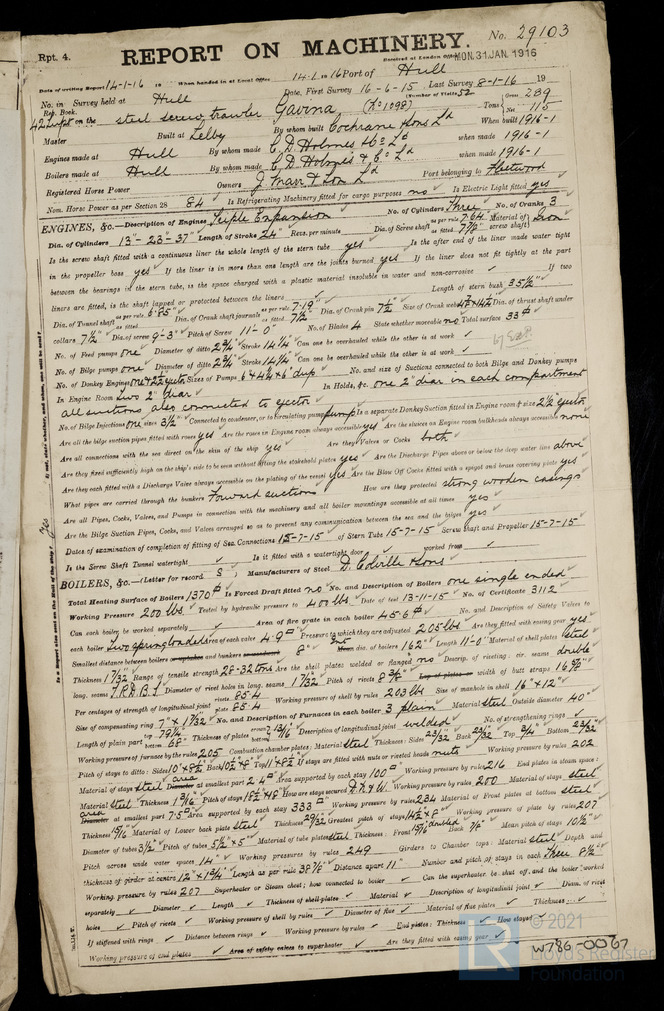 Rpt. 4.
REPORT ON MACHINERY.
No. 29103
Received at London Office MON. 31 JAN. 1916
Date of writing Report 14-1-16 19 When handed in at Local Office 14-1-1916 Port of Hull
No. in Reg. Book. Survey held at Hull Date, First Survey 16-6-15 Last Survey 8-1-16 19
(Number of Visits 52
on the steel screw trawler Gavina (No 1098) Tons Gross 289 Net 115
Master Built at Selby By whom built Cochrane & Sons Ld When built 1916-1
Engines made at Hull By whom made C. D. Holmes & Co Ld when made 1916-1
Boilers made at Hull By whom made C. D. Holmes & Co Ld when made 1916-1
Registered Horse Power Owners J. Marr & Son Ld Port belonging to Fleetwood
Nom. Horse Power as per Section 28 84 Is Refrigerating Machinery fitted for cargo purposes no Is Electric Light fitted yes
ENGINES, &c.—Description of Engines Triple Expansion No. of Cylinders Three No. of Cranks 3
Dia. of Cylinders 13"-23"-37" Length of Stroke 24" Revs. per minute Dia. of Screw shaft as per rule 7.64 as fitted 7 7/8" Material of screw shaft Iron
Is the screw shaft fitted with a continuous liner the whole length of the stern tube yes Is the after end of the liner made water tight
in the propeller boss yes If the liner is in more than one length are the joints burned yes If the liner does not fit tightly at the part
between the bearings in the stern tube, is the space charged with a plastic material insoluble in water and non-corrosive ✓ If two
liners are fitted, is the shaft lapped or protected between the liners Length of stern bush 35½"
Dia. of Tunnel shaft as per rule 6.85" as fitted Dia. of Crank shaft journals as per rule 7.19" as fitted 7½" Dia. of Crank pin 7½" Size of Crank webs Dia. of thrust shaft under
collars 7½" Dia. of screw 9'-3" Pitch of Screw 11'-0" No. of Blades 4 State whether moveable no Total surface 33 ft
No. of Feed pumps one Diameter of ditto 2¾" Stroke 14¼" Can one be overhauled while the other is at work ✓
No. of Bilge pumps one Diameter of ditto 2¾" Stroke 14¼" Can one be overhauled while the other is at work ✓
No. of Donkey Engines one & 2½" ejector Sizes of Pumps 6 & 4¼ x 6" dup No. and size of Suctions connected to both Bilge and Donkey pumps
In Engine Room two 2" diar In Holds, &c. one 2" diar in each compartment
all suctions also connected to ejector
No. of Bilge Injections one sizes 3½" Connected to condenser, or to circulating pump pump Is a separate Donkey Suction fitted in Engine room & size 2½" ejector
Are all the bilge suction pipes fitted with roses yes Are the roses in Engine room always accessible yes Are the sluices on Engine room bulkheads always accessible none
Are all connections with the sea direct on the skin of the ship yes Are they Valves or Cocks both
Are they fixed sufficiently high on the ship's side to be seen without lifting the stokehold plates yes Are the Discharge Pipes above or below the deep water line above
Are they each fitted with a Discharge Valve always accessible on the plating of the vessel yes Are the Blow Off Cocks fitted with a spigot and brass covering plate yes
What pipes are carried through the bunkers Forward suctions How are they protected strong wooden casings
Are all Pipes, Cocks, Valves, and Pumps in connection with the machinery and all boiler mountings accessible at all times yes
Are the Bilge Suction Pipes, Cocks, and Valves arranged so as to prevent any communication between the sea and the bilges yes
Dates of examination of completion of fitting of Sea Connections 15-7-15 of Stern Tube 15-7-15 Screw Shaft and Propeller 15-7-15
Is the Screw Shaft Tunnel watertight ✓ Is it fitted with a watertight door ✓ worked from ✓
BOILERS, &c.—(Letter for record S) Manufacturers of Steel D. Colville & Sons
Total Heating Surface of Boilers 1370 Is Forced Draft fitted no No. and Description of Boilers one single ended
Working Pressure 200 lbs Tested by hydraulic pressure to 400 lbs Date of test 13-11-15 No. of Certificate 3112
Can each boiler be worked separately ✓ Area of fire grate in each boiler 45.6 No. and Description of Safety Valves to
each boiler Two spring loaded Area of each valve 4.9 Pressure to which they are adjusted 205 lbs Are they fitted with easing gear yes
Smallest distance between boilers or uptakes and bunkers or woodwork 8" dia. of boilers 162" Length 11'-0" Material of shell plates steel
Thickness 1 7/32" Range of tensile strength 28-32 tons Are the shell plates welded or flanged no Descrip. of riveting: cir. seams double
long. seams T.R.D.B.S. Diameter of rivet holes in long. seams 1 7/32" Pitch of rivets 8 3/8" Lap of plates or width of butt straps 16 5/8"
Per centages of strength of longitudinal joint rivets 85.4 plate 85.4 Working pressure of shell by rules 203 lbs Size of manhole in shell 16" x 12"
Size of compensating ring 7" x 1 7/32" No. and Description of Furnaces in each boiler 3 plain Material steel Outside diameter 40"
Length of plain part top 79¼" bottom 68" Thickness of plates crown bottom 13/16" Description of longitudinal joint welded No. of strengthening rings ✓
Working pressure of furnace by the rules 205 Combustion chamber plates: Material steel Thickness: Sides 23/32" Back 23/32" Top 3/4" Bottom 23/32"
Pitch of stays to ditto: Sides 10" x 8½" Back 10½" x 8" Top 11" x 8½" If stays are fitted with nuts or riveted heads nuts Working pressure by rules 202
Material of stays steel area at smallest part 2.4 Area supported by each stay 100 Working pressure by rules 216 End plates in steam space:
Material steel Thickness 1 3/16" Pitch of stays 18½" x 18" How are stays secured D.N. & W. Working pressure by rules 200 Material of stays steel
area at smallest part 7.5 Area supported by each stay 333 Working pressure by rules 234 Material of Front plates at bottom steel
Thickness 15/16" Material of Lower back plate steel Thickness 29/32" Greatest pitch of stays 14½" x 8" Working pressure of plate by rules 207
Diameter of tubes 3½" Pitch of tubes 5½" x 5" Material of tube plates steel Thickness: Front 15/16" doubled Back 7/8" Mean pitch of stays 10½"
Pitch across wide water spaces 14" Working pressures by rules 249 Girders to Chamber tops: Material steel Depth and
thickness of girder at centre 12" x 1¾" Length as per rule 38 7/8" Distance apart 11" Number and pitch of stays in each Three 8½"
Working pressure by rules 207 Superheater or Steam chest; how connected to boiler ✓ Can the superheater be shut off and the boiler worked
separately ✓ Diameter ✓ Length ✓ Thickness of shell plates ✓ Material ✓ Description of longitudinal joint ✓ Diam. of rivet
holes ✓ Pitch of rivets ✓ Working pressure of shell by rules ✓ Diameter of flue ✓ Material of flue plates ✓ Thickness ✓
If stiffened with rings ✓ Distance between rings ✓ Working pressure by rules ✓ End plates: Thickness ✓ How stayed ✓
Working pressure of end plates ✓ Area of safety valves to superheater ✓ Are they fitted with easing gear ✓
W786-0067
© 2021
Lloyd's Register
Foundation